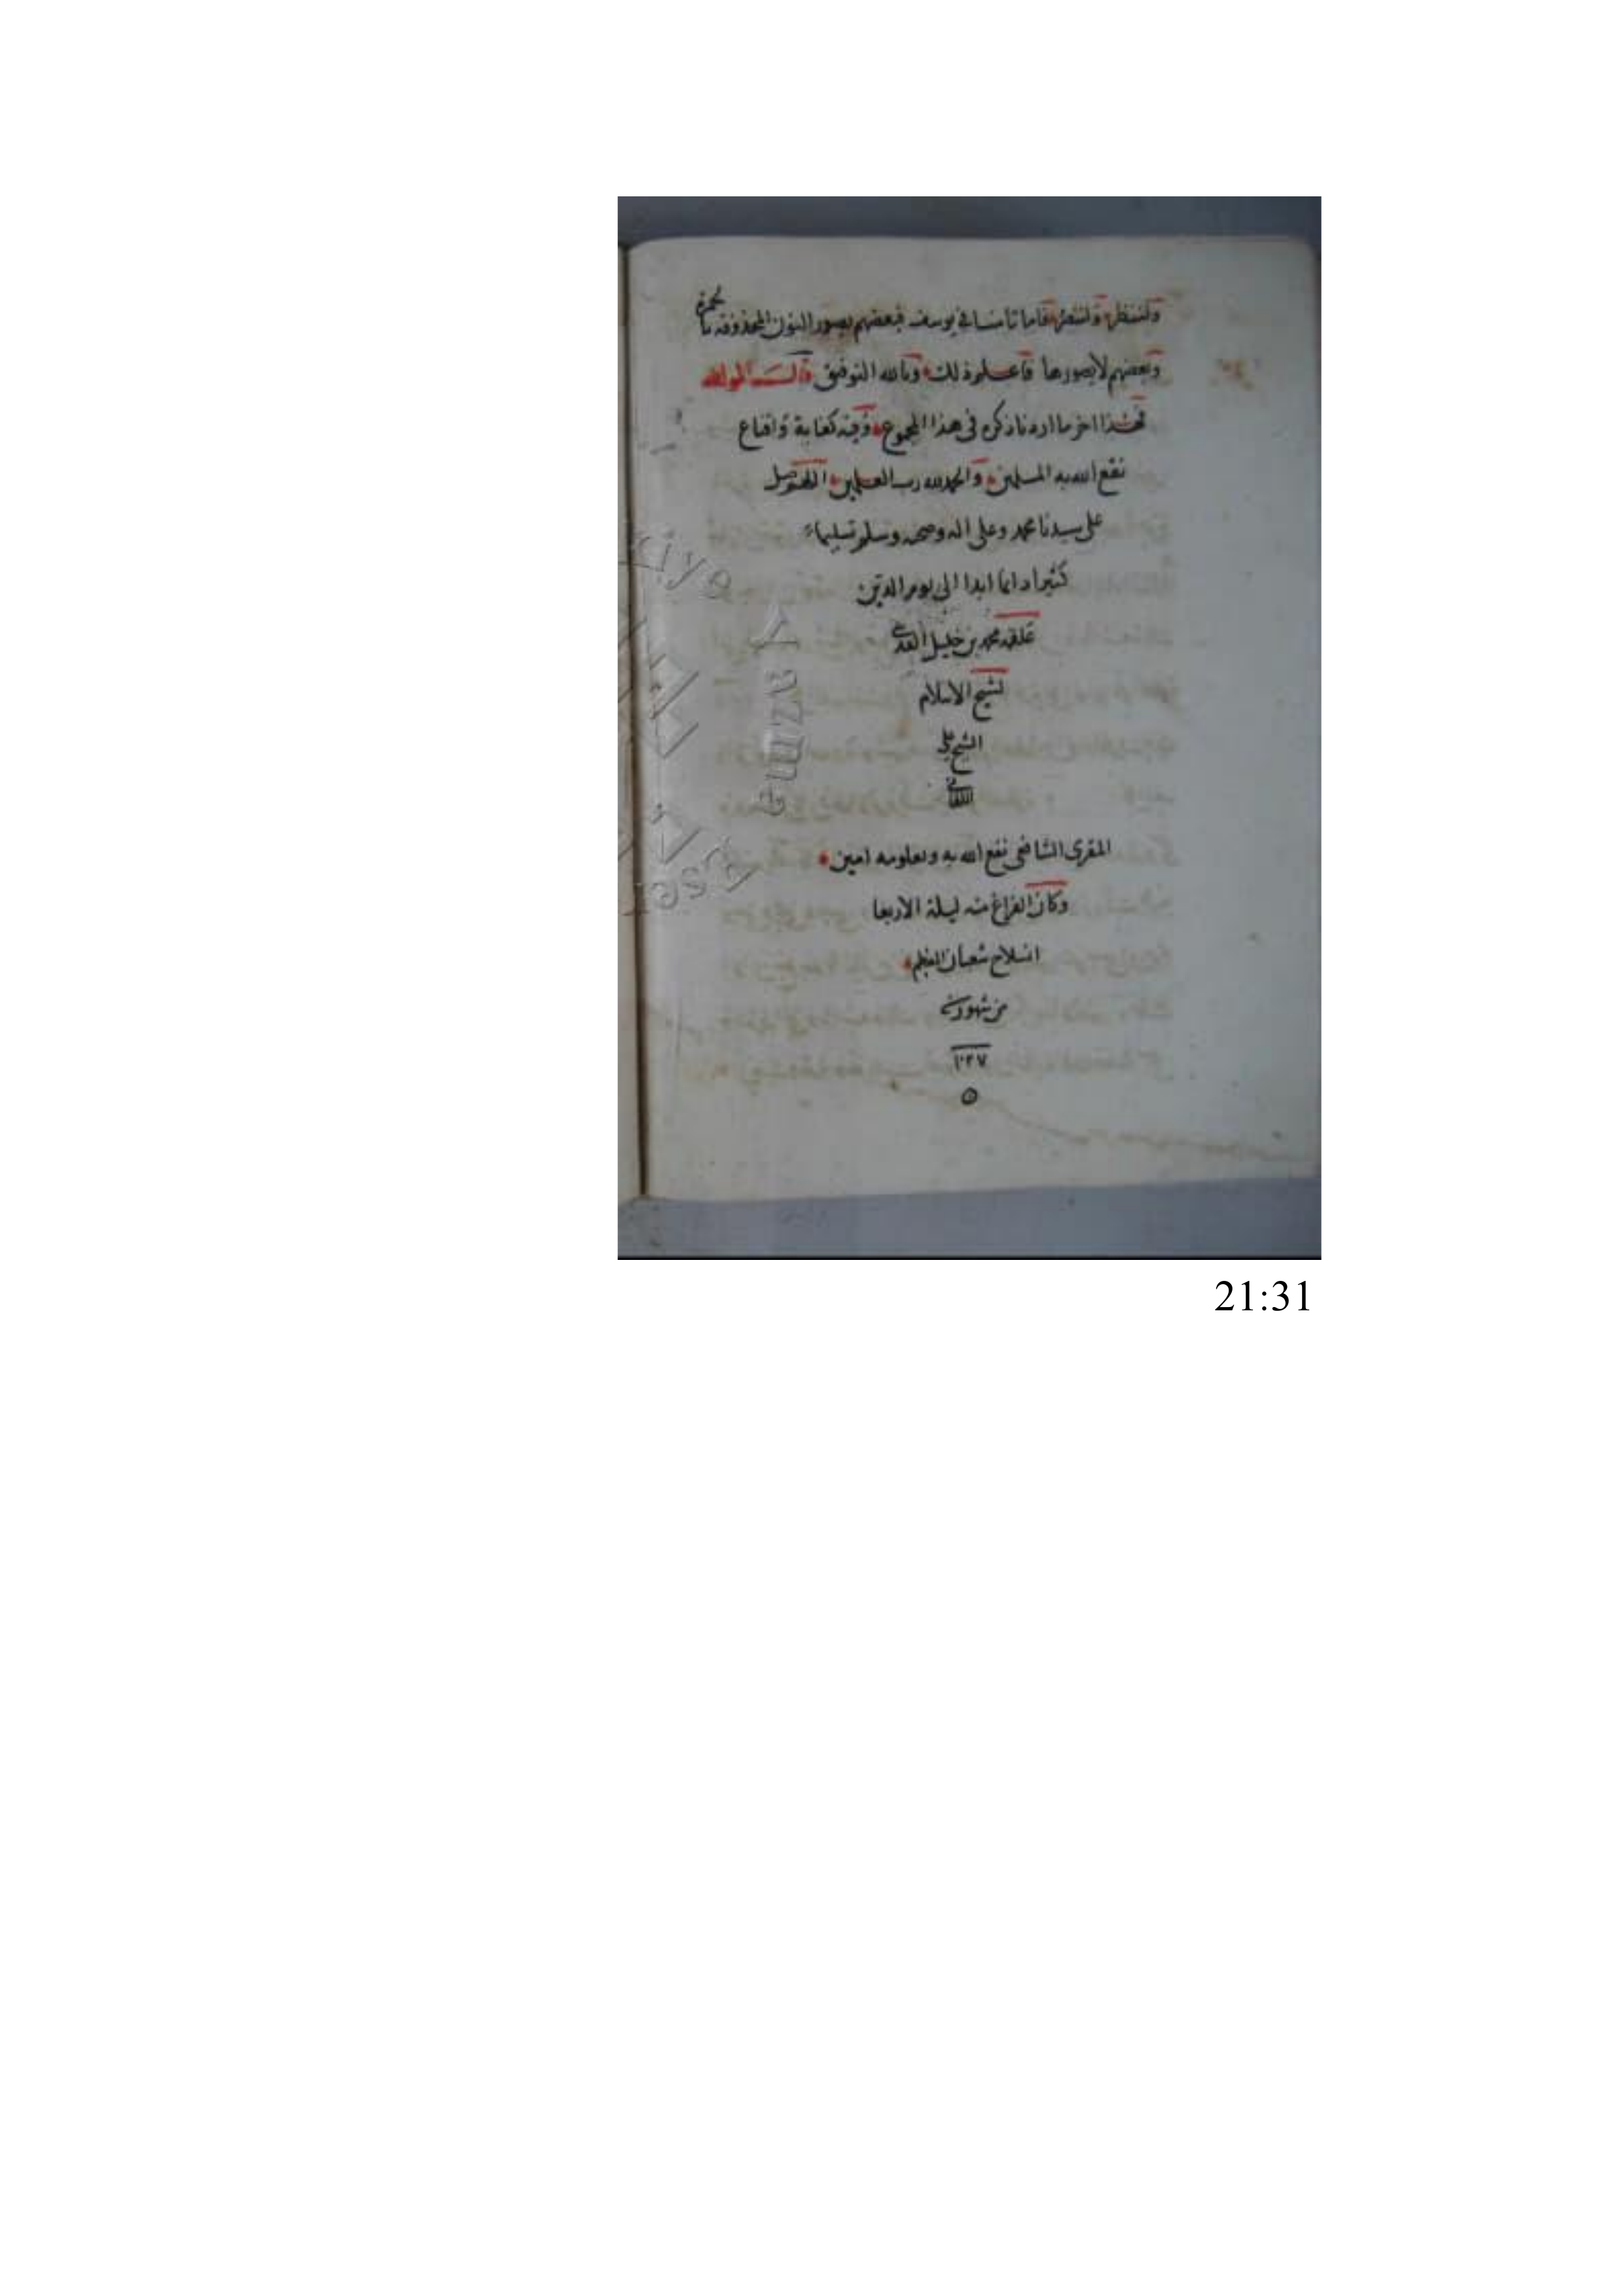 ولننظر ولننصر فاما تامنا في يوسف فبعضهم يصور النون المحذوفة بالحمرة
وبعضهم لا يصورها فاعلم ذلك وبالله التوفيق قال المولف
فهذا اخر ما اردنا ذكره في هذا المجموع وفيه كفاية واقناع
نفع الله به المسلمين والحمد لله رب العلمين اللهم صل
على سيدنا محمد وعلى اله وصحبه وسلم تسليما
كثيرا دايما ابدا الى يوم الدين
علقه محمد بن خليل القدسي
لشيخ الاسلام
الشيخ علي
المقرى الشافعى نفع الله به وبعلومه امين
وكان الفراغ منه ليلة الاربعا
انسلاخ شعبان المعظم
من شهور سنة
21:31